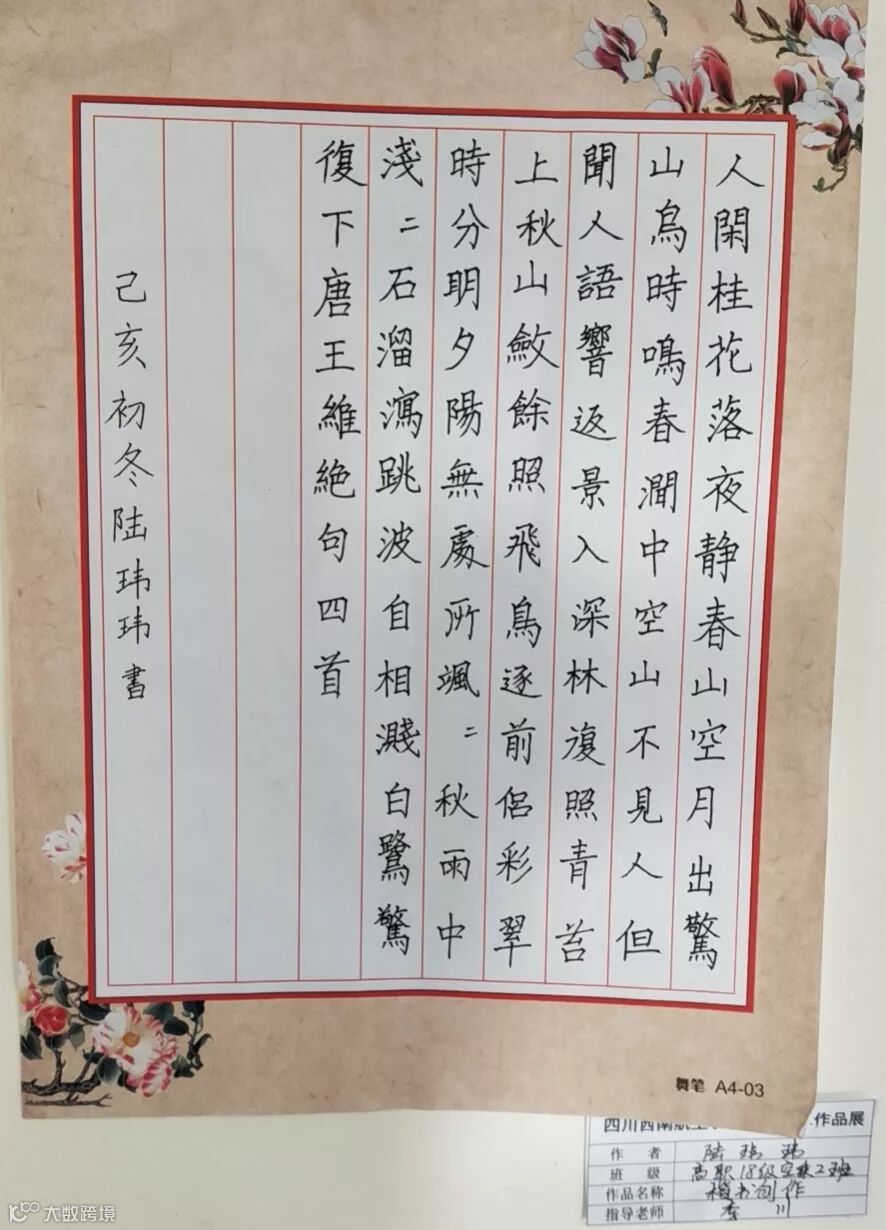 人閑桂花落夜静春山空月出驚
山鳥時鳴春澗中空山不見人但
聞人語響返景入深林復照青苔
上秋山斂餘照飛鳥逐前侣彩翠
時分明夕陽無處所颯〻秋雨中
淺〻石溜瀉跳波自相濺白鷺驚
復下唐王維絶句四首
己亥初冬陆玮玮書
舞笔 A4-03
作品展
作 者 陆玮玮
班 级 高职18级空乘2班
作品名称 楷书创作
指导老师 李川
大数跨境